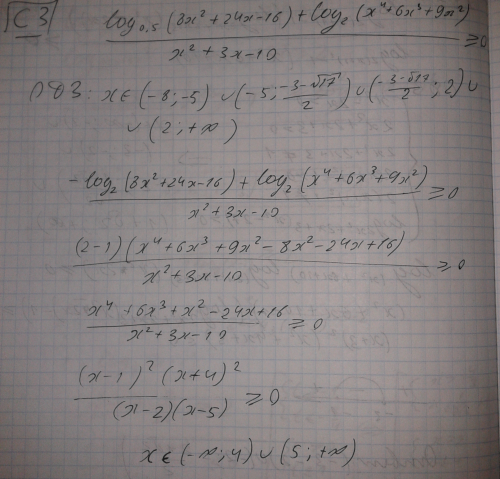 C3
log₀,₅ (8x² + 24x - 16) + log₂ (x⁴ + 6x³ + 9x²)
x² + 3x - 10
≥ 0
ОДЗ: x ∈ (-8; -5) ∪ (-5; (-3-√17)/2) ∪ ((-3-√17)/2; 2) ∪
∪ (2; +∞)
-log₂ (8x² + 24x - 16) + log₂ (x⁴ + 6x³ + 9x²)
x² + 3x - 10
≥ 0
(2-1)(x⁴ + 6x³ + 9x² - 8x² - 24x + 16)
x² + 3x - 10
≥ 0
x⁴ + 6x³ + x² - 24x + 16
x² + 3x - 10
≥ 0
(x-1)² (x+4)²
(x-2)(x-5)
≥ 0
x ∈ (-∞; 4) ∪ (5; +∞)